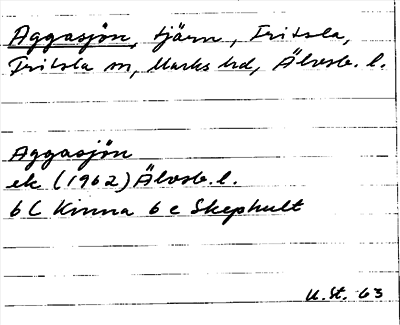 Aggasjön, tjärn, Fritsla,
Fritsla sn, Marks hd, Älvsb. l.
Aggasjön
ek (1962) Älvsb. l.
6 C Kinna 6 e Skephult
U. St. 63